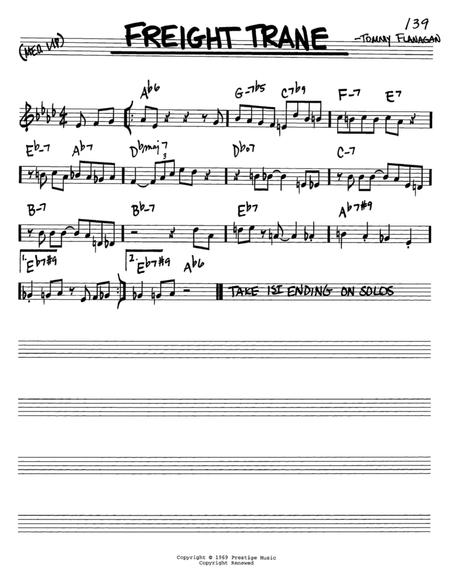 139
FREIGHT TRANE
(MED. UP)
-TOMMY FLANAGAN
A♭6 G-7♭5 C7♭9 F-7 E7
E♭-7 A♭7 D♭maj7 D♭o7 C-7
3
B-7 B♭-7 E♭7 A♭7#9
1. E♭7#9 2. E♭7#9 A♭6
TAKE 1ST ENDING ON SOLOS
Copyright © 1969 Prestige Music
Copyright Renewed